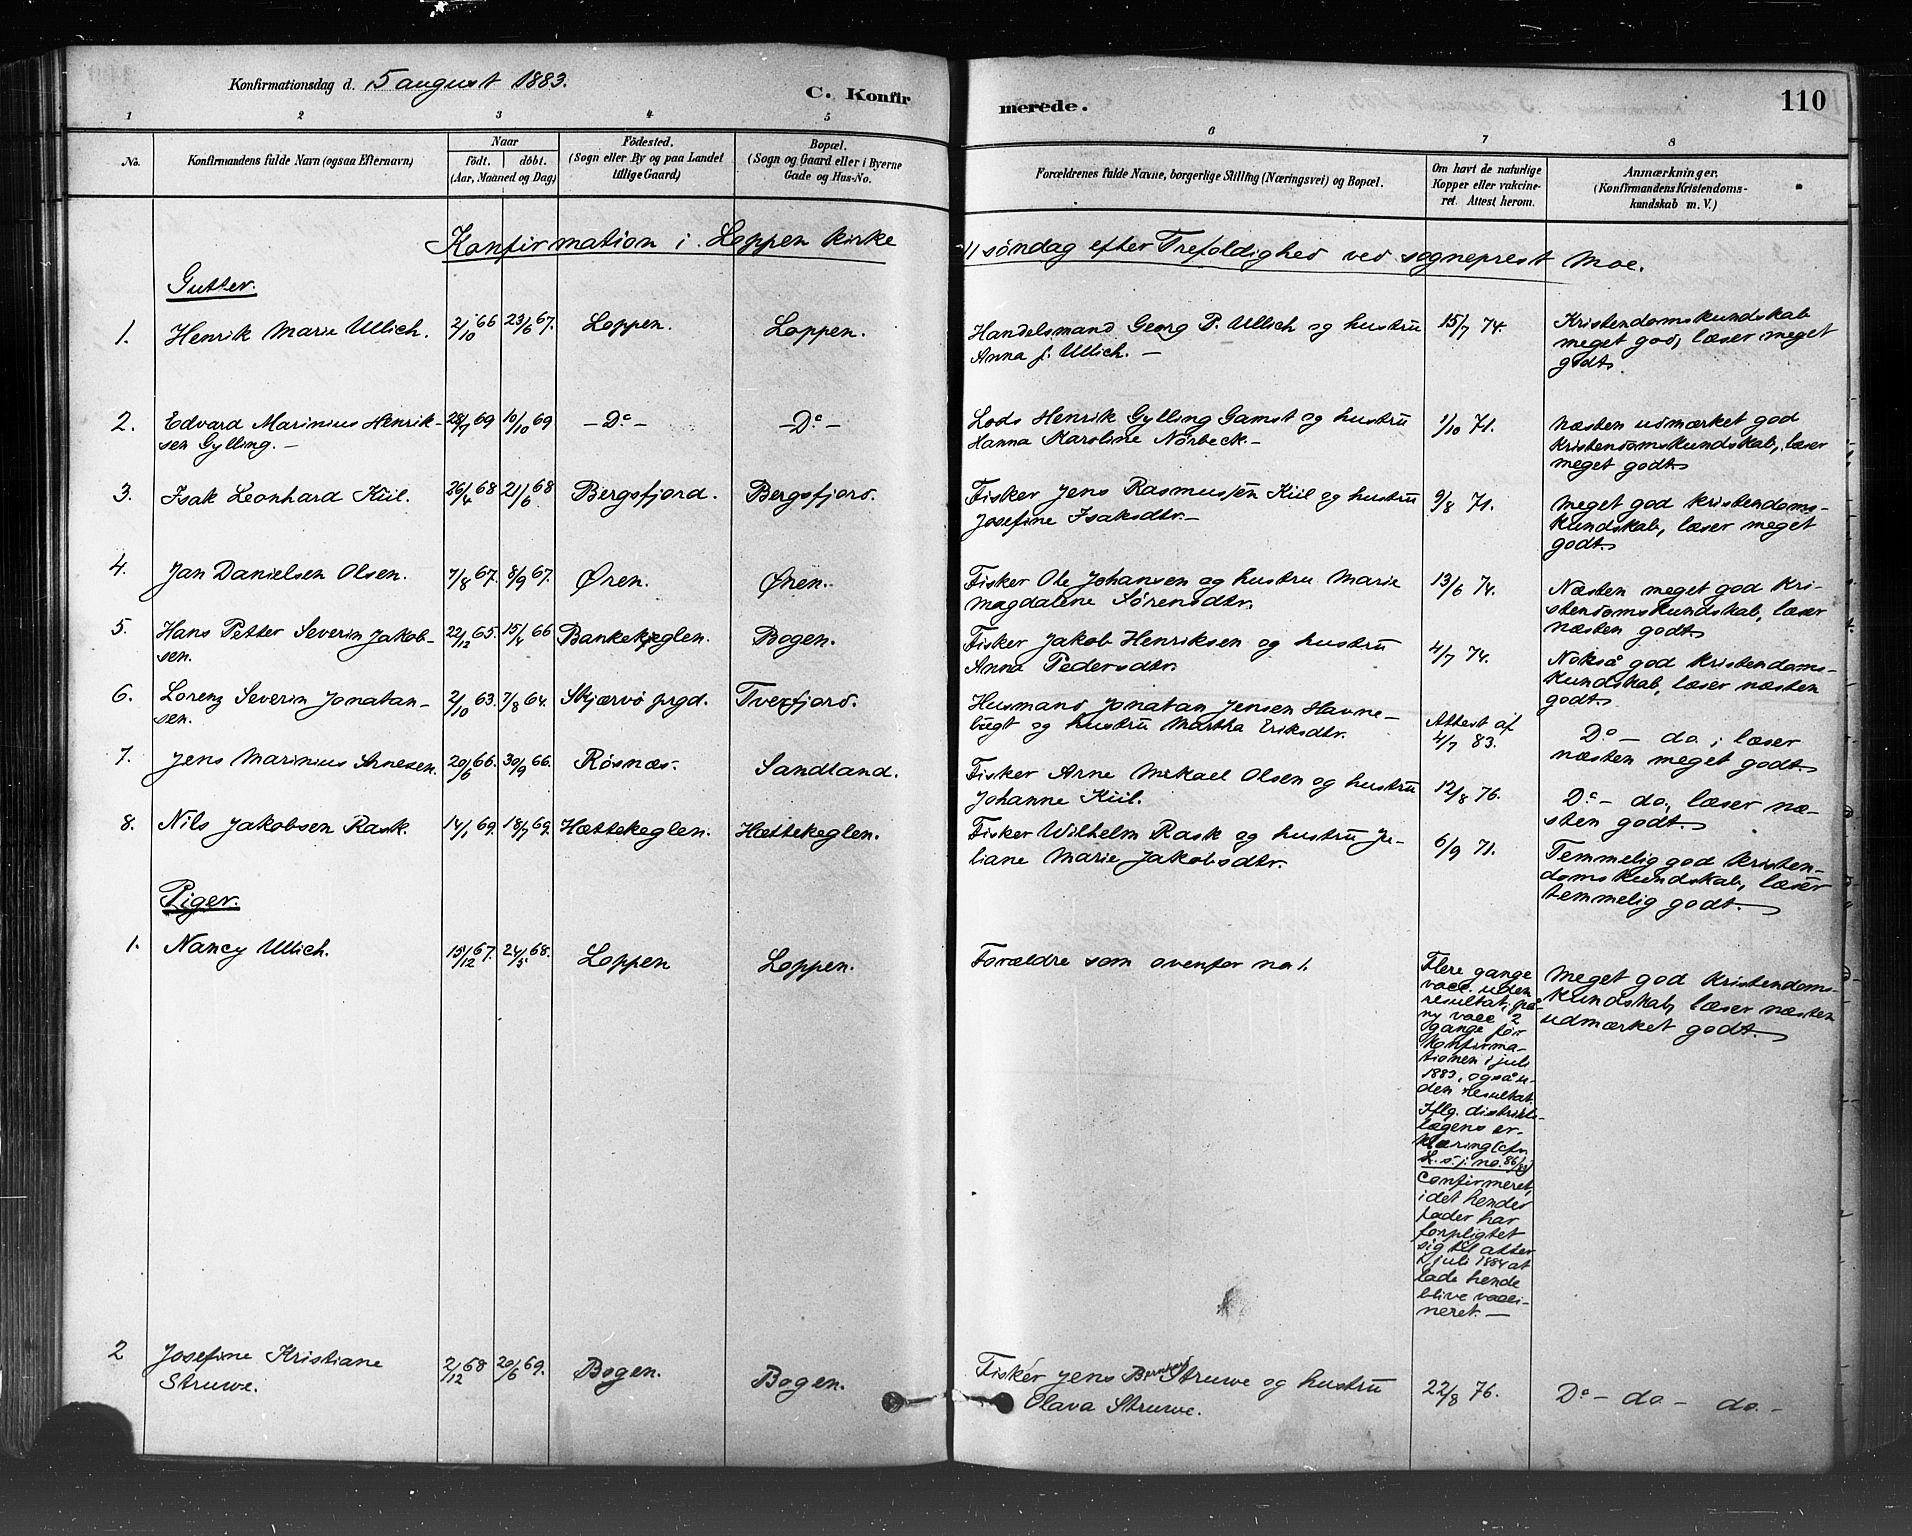 Konfirmationsdag d. 5 august 1883.
C. Konfir
merede.
110
1 2 3 4 5 6 7 8
No.
Konfirmandens fulde Navn (ogsaa Efternavn)
Naar
født. døbt.
(Aar, Maaned og Dag)
Fødested.
(Sogn eller By og paa Landet
tillige Gaard)
Bopæl.
(Sogn og Gaard eller i Byerne
Gade og Hus-No.
Forældrenes fulde Navne, borgerlige Stilling (Næringsvei) og Bopæl.
Om havt de naturlige
Kopper eller vakcine-
ret. Attest herom.
Anmærkninger.
(Konfirmandens Kristendoms-
kundskab m. V.)
Konfirmation i Loppen kirke
11 søndag efter Trefoldighed ved sogneprest Moe.
Gutter.
1. Henrik Marie Ullich. 2/10 66 23/6 67. Loppen. Loppen.
Handelsmand Georg P. Ullich og hustru
Anna f. Ullich. —
15/7 74.
Kristendomskundskab
meget god, læser meget
godt.
2. Edvard Marinius Henrik-
sen Gylling. —
28/7 69 10/10 69 — Do — — Do —
Lods Henrik Gylling Gamst og hustru
Hanna Karoline Norbeck —
1/10 71.
Næsten udmærket god
kristendomskundskab, læser
meget godt
3. Isak Leonhard Kiil. 26/4 68 21/6 68 Bergsfjord. Bergsfjord.
Fisker Jens Rasmussen Kiil og hustru
Josefine Isaksdtr. —
9/8 71.
Meget god kristendoms-
kundskab, læser meget
godt.
4. Jan Danielsen Olsen. 7/8 67. 8/9 67. Øren. Øren.
Fisker Ole Johansen og hustru Marie
Magdalene Sørensdtr.
13/6 74.
Næsten meget god kri-
stendomskundskab, læser
næsten godt.
5. Hans Petter Severin Jakob-
sen.
22/12 65. 15/4 66 Bankekeglen. Bogen.
Fisker Jakob Henriksen og hustru
Anna Pedersdtr.
4/7 74.
Nokså god kristendoms-
kundskab, læser næsten
godt.
6. Lorenz Severin Jonatan-
sen.
2/10 63. 7/8 64. Skjærvø prgd. Tverfjord.
Husmand Jonatan Jensen Havne-
bugt og hustru Martha Eriksdtr.
Attest af
4/7 83.
Do — do, læser
næsten meget godt.
7. Jens Marinius Arnesen. 20/6 66. 30/9 66. Røsnæs. Sandland.
Fisker Arne Mikael Olsen og hustru
Johanne Kiil.
12/8 76.
Do — do, læser næ-
sten godt.
8. Nils Jakobsen Rask. 14/1 69. 18/7 69. Hættekeglen. Hættekeglen.
Fisker Wilhelm Rask og hustru Ju-
liane Marie Jakobsdtr.
6/9 71.
Temmelig god kristen-
domskundskab, læser
temmelig godt.
Piger.
1. Nancy Ullich. 15/12 67. 24/5 68. Loppen Loppen.
Forældre som ovenfor no 1.
Flere gange
vacc. uden
resultat, på
ny vacc 2
gange før
konfirma-
tionen i juli
1883, også u-
den resultat.
Iflg. distrikts-
lægens er-
klæring (cfr
K. s. j. no. 86/83)
confirmeret,
idet hendes
fader har
forpligtet
sig til atter
i juli 1884 at
lade hende
blive vacci-
neret. —
Meget god kristendoms-
kundskab, læser næsten
udmærket godt.
2 Josefine Kristiane
Struwe.
2/12 68 20/6 69. Bogen. Bogen.
Fisker Jens Struwe og hustru
Olava Struwe.
22/8 76.
Do — do — do. —